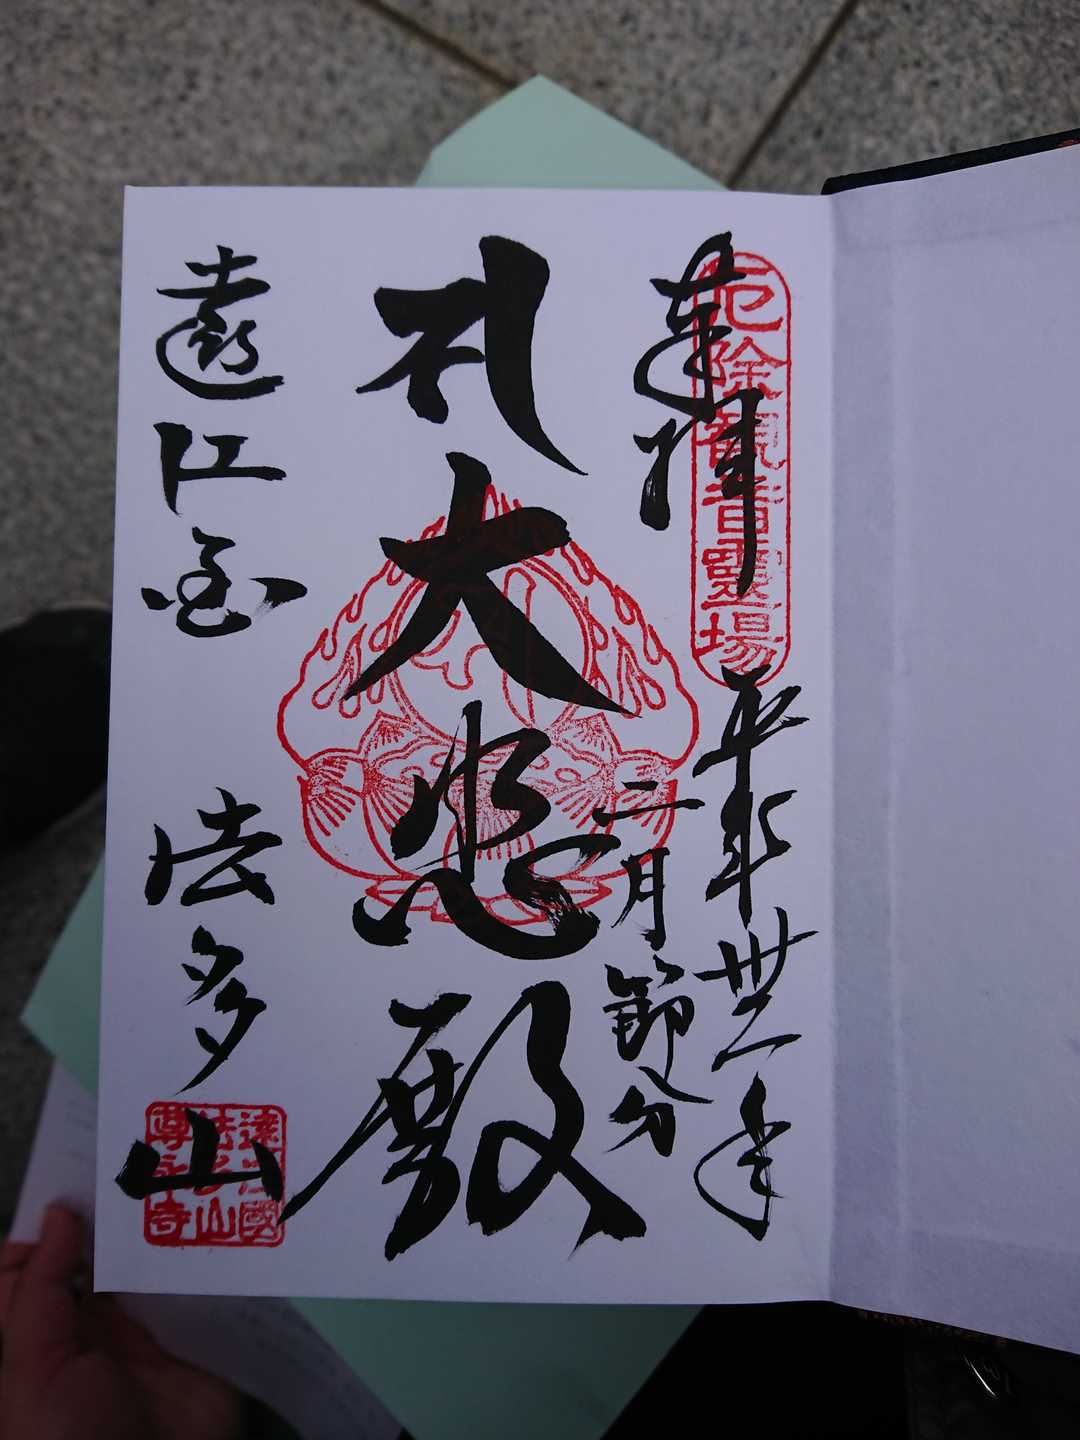 奉拝
厄除観音靈場
平成丗一年
二月節分
大悲殿
遠江国 法多山
遠江國
法多山
尊永寺